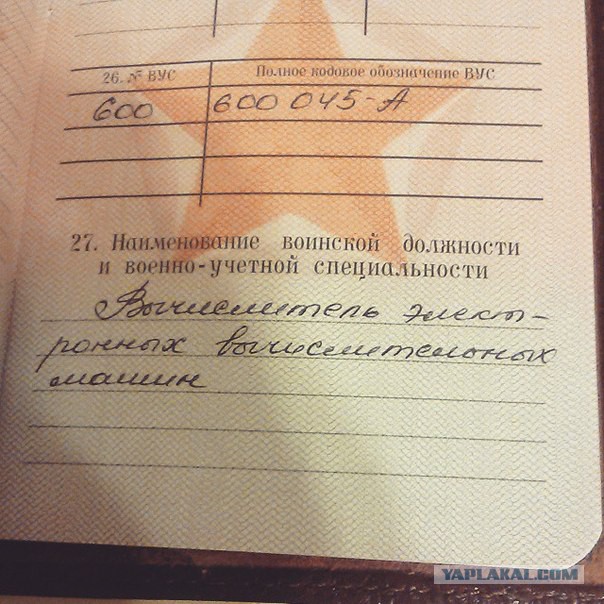 26. № ВУС Полное кодовое обозначение ВУС
600 600 045-А
27. Наименование воинской должности
и военно-учетной специальности
Вычислитель элект-
ронных вычислительных
машин
YAPLAKAL.COM